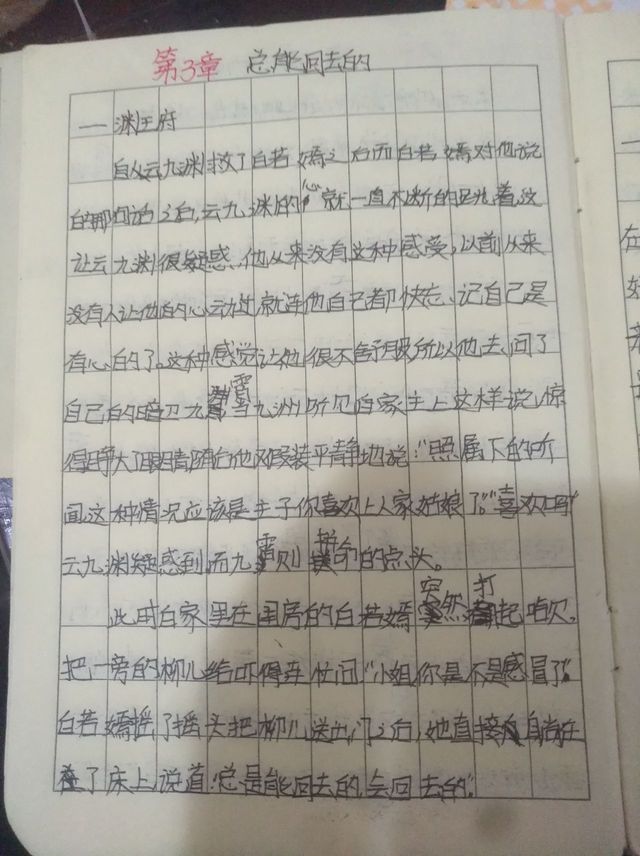 第3章 总能回去的
——渊王府
自从云九渊救了白若嫣之后而白若嫣对他说
的那句话之后,云九渊的心就一直不断的跳着,这
让云九渊很疑惑,他从来没有这种感受,以前从来
没有人让他的心动过,就连他自己都快忘记自己是
有心的了。这种感觉让他很不舒服所以他去问了
自己的暗卫九霄,当九洲听见自家主上这样说,惊
得睁大了眼睛随后他又假装平静地说:"照属下的所
闻,这种情况应该是主子你喜欢上人家姑娘了。""喜欢吗?"
云九渊疑惑到,而九霄则拼命的点头。
此时白家里在闺房的白若嫣突然打起哈欠。
把一旁的柳儿给吓得连忙问"小姐,你是不是感冒了"。
白若嫣摇了摇头把柳儿送出门之后,她直接自躺在
了床上,说道:"总是能回去的,会回去的"。